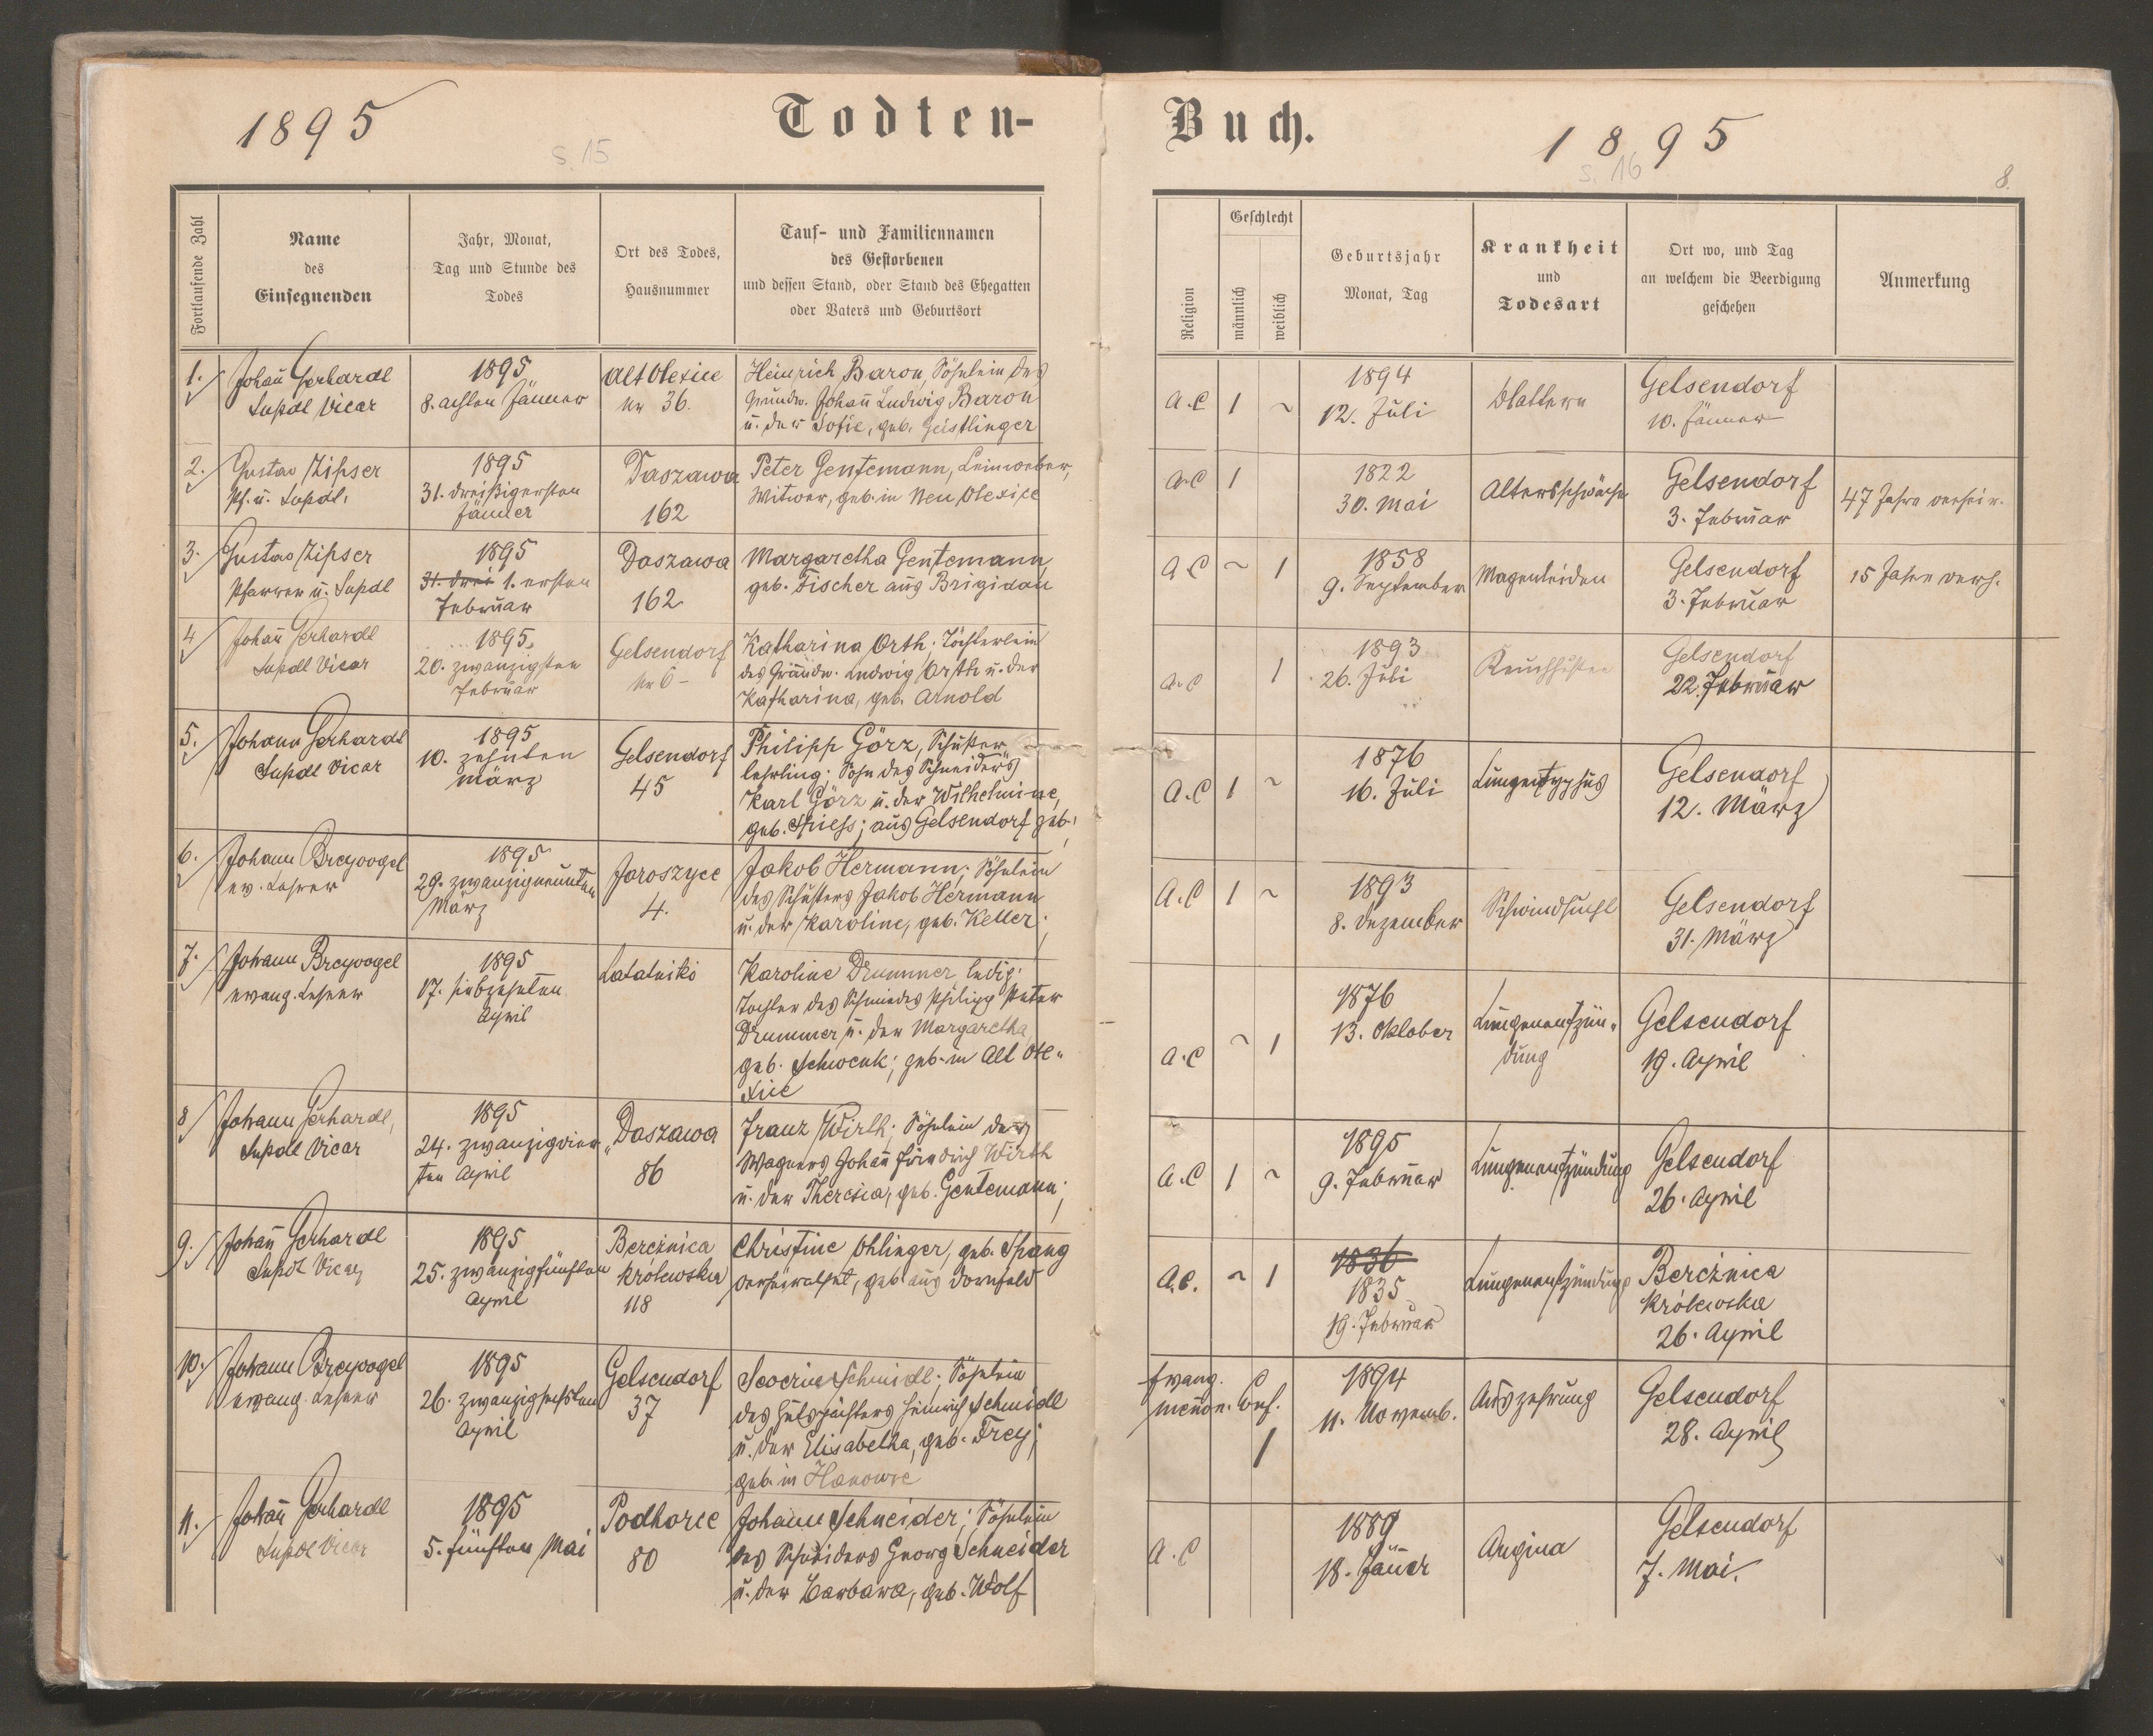 1895
Todten-
Buch.
1895
S. 15
S. 16
8.
Fortlaufende Zahl
Name
des
Einsegnenden
Jahr, Monat,
Tag und Stunde des
Todes
Ort des Todes,
Hausnummer
Tauf- und Familiennamen
des Gestorbenen
und dessen Stand, oder Stand des Ehegatten
oder Vaters und Geburtsort
Religion
Geschlecht
männlich
weiblich
Geburtsjahr
Monat, Tag
Krankheit
und
Todesart
Ort wo, und Tag
an welchem die Beerdigung
geschehen
Anmerkung
1.
Johañ Gerhardt
Supdt Vicar
1895
8. achten Jänner
Alt Olexice
Nr 36.
Heinrich Baron, Söhnlein des
Grundw. Johañ Ludwig Baron
u. der Sofie, geb. Geistlinger
A.C 1 ~
1894
12. Juli
Blattern
Gelsendorf
10. Jänner
2.
Gustav Zipser
Pf. u. Supdt.
1895
31. dreißigersten
Jänner
Daszawa
162
Peter Gentemann, Leinweber,
Witwer, geb. in Neu Olexice
A.C 1
1822
30. Mai
Altersschwäche
Gelsendorf
3. Februar
47 Jahre verheir.
3.
Gustav Zipser
Pfarrer u. Supdt
1895
31. drei 1. ersten
Februar
Daszawa
162
Margaretha Gentemann
geb. Fischer aus Brigidau
A.C ~ 1
1858
9. September
Magenleiden
Gelsendorf
3. Februar
15 Jahre verh.
4
Johañ Gerhardt
Supdt Vicar
1895
20. zwanzigsten
Februar
Gelsendorf
Nr 6-
Katharina Orth; Töchterlein
des Grundw. Ludwig Orth u. der
Katharina, geb. Arnold
A.C 1
1893
26. Juli
Keuchhusten
Gelsendorf
22. Februar
5.
Johann Gerhardt
Supdt Vicar
1895
10. zehnten
März
Gelsendorf
45
Philipp Görz, Schuster„
lehrling; Sohn des Schneiders
Karl Görz u. der Wilhelmine,
geb. Spiess; aus Gelsendorf geb.
A.C 1 ~
1876
16. Juli
Lungentyphus
Gelsendorf
12. März
6.
Johann Breyvogel
ev. Lehrer
1895
29. zwanzigneunten
März
Jaroszyce
4.
Jakob Hermann; Söhnlein
des Schusters Jakob Hermann
u. der Karoline, geb. Keller;
A.C 1 ~
1893
8. Dezember
Schwindsucht
Gelsendorf
31. März
7.
Johann Breyvogel
evang. Lehrer
1895
17. siebzehnten
April
Latatniki
Karoline Drummer ledig;
Tochter des Schmiedes Philipp Peter
Drummer u. der Margaretha
geb. Schwenk; geb. in Alt Ole„
xice
A.C ~ 1
1876
13. Oktober
Lungenentzün„
dung
Gelsendorf
19. April
8
Johann Gerhardt,
Supdt Vicar
1895
24. zwanzigvier„
ten April
Daszawa
86
Franz Wirth; Söhnlein des
Wagners Johañ Friedrich Wirth
u. der Theresia, geb. Gentemann;
A.C 1 ~
1895
9. Februar
Lungenentzündung
Gelsendorf
26. April
9.
Johañ Gerhardt
Supdt Vicar
1895
25. zwanzigfünften
April
Bereżnica
królewska
118
Christine Ohlinger, geb. Spang
verheirathet, geb aus Dornfeld
A.C. ~ 1
1836
1835
19. Februar
Lungenentzündung
Bereżnica
królewska
26. April
10.
Johann Breyvogel
evang. Lehrer
1895
26. zwanzigsechsten
April
Gelsendorf
37
Severin Schmidt; Söhnlein
des Gutspächters Heinrich Schmidt
u. der Elisabetha, geb. Frey;
geb. in Hanowce
Evang.
meñon. Conf.
1
1894
11. Novemb.
Auszehrung
Gelsendorf
28. April
11.
Johañ Gerhardt
Supdt Vicar
1895
5. fünften Mai
Podhorce
80
Johann Schneider; Söhnlein
des Schneiders Georg Schneider
u. der Barbara, geb. Wolf
A.C
1889
18. Jäner
Angina
Gelsendorf
7. Mai.